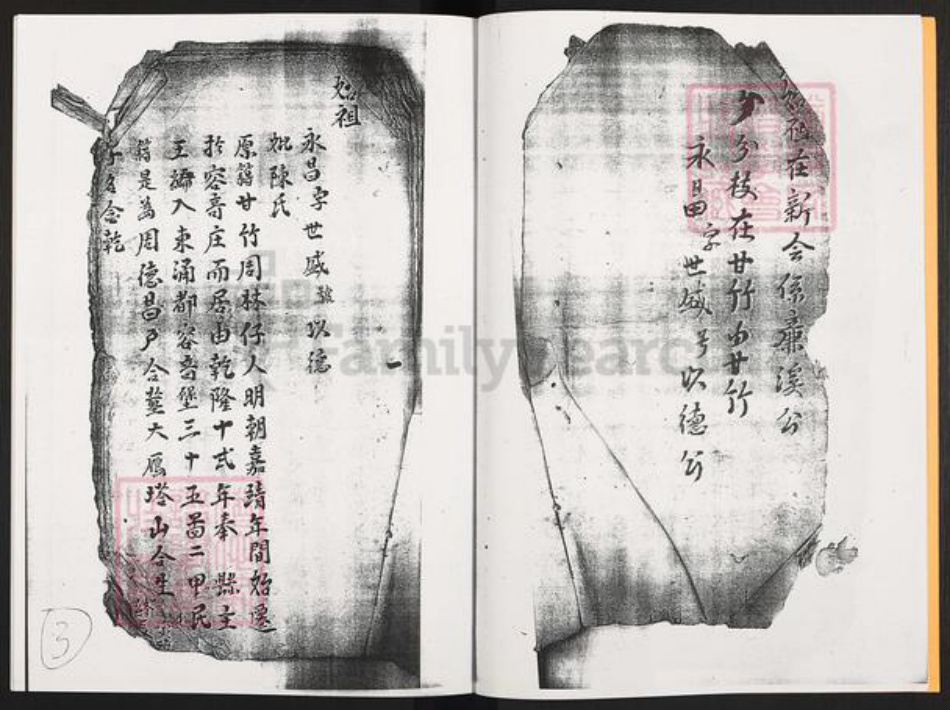 始祖在新会係廉溪公
分枝在甘竹由甘竹
永昌字世威号以德公
始祖
永昌字世威號以德
妣陳氏
原籍甘竹周林仔人明朝嘉靖年間始遷
於容奇庄而居由乾隆十弍年奉縣主
王濟入東涌都容奇堡三十五啚二甲民
籍是為周德昌户合塟大雁塔山
子名念乾
3
FamilySearch